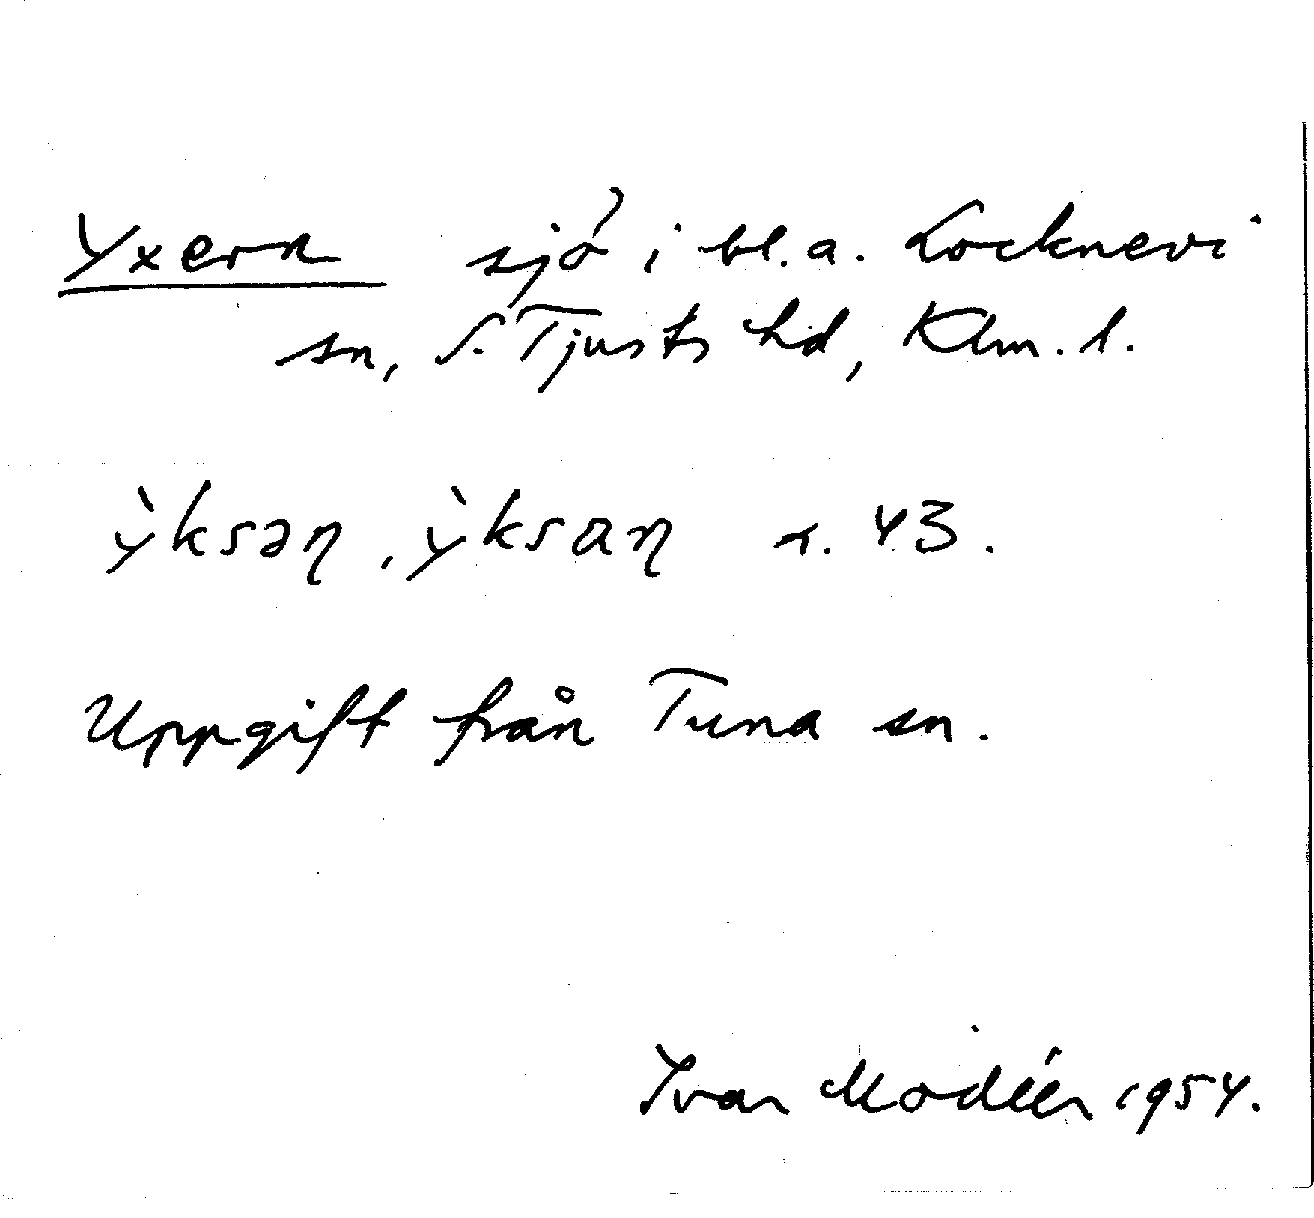 Yxern sjö i bl. a. Locknevi
sn, S. Tjusts hd, Klm. l.
ỳksəɳ, ỳksaɳ r. 43.
Uppgift från Tuna sn.
Ivar Modéer 1954.